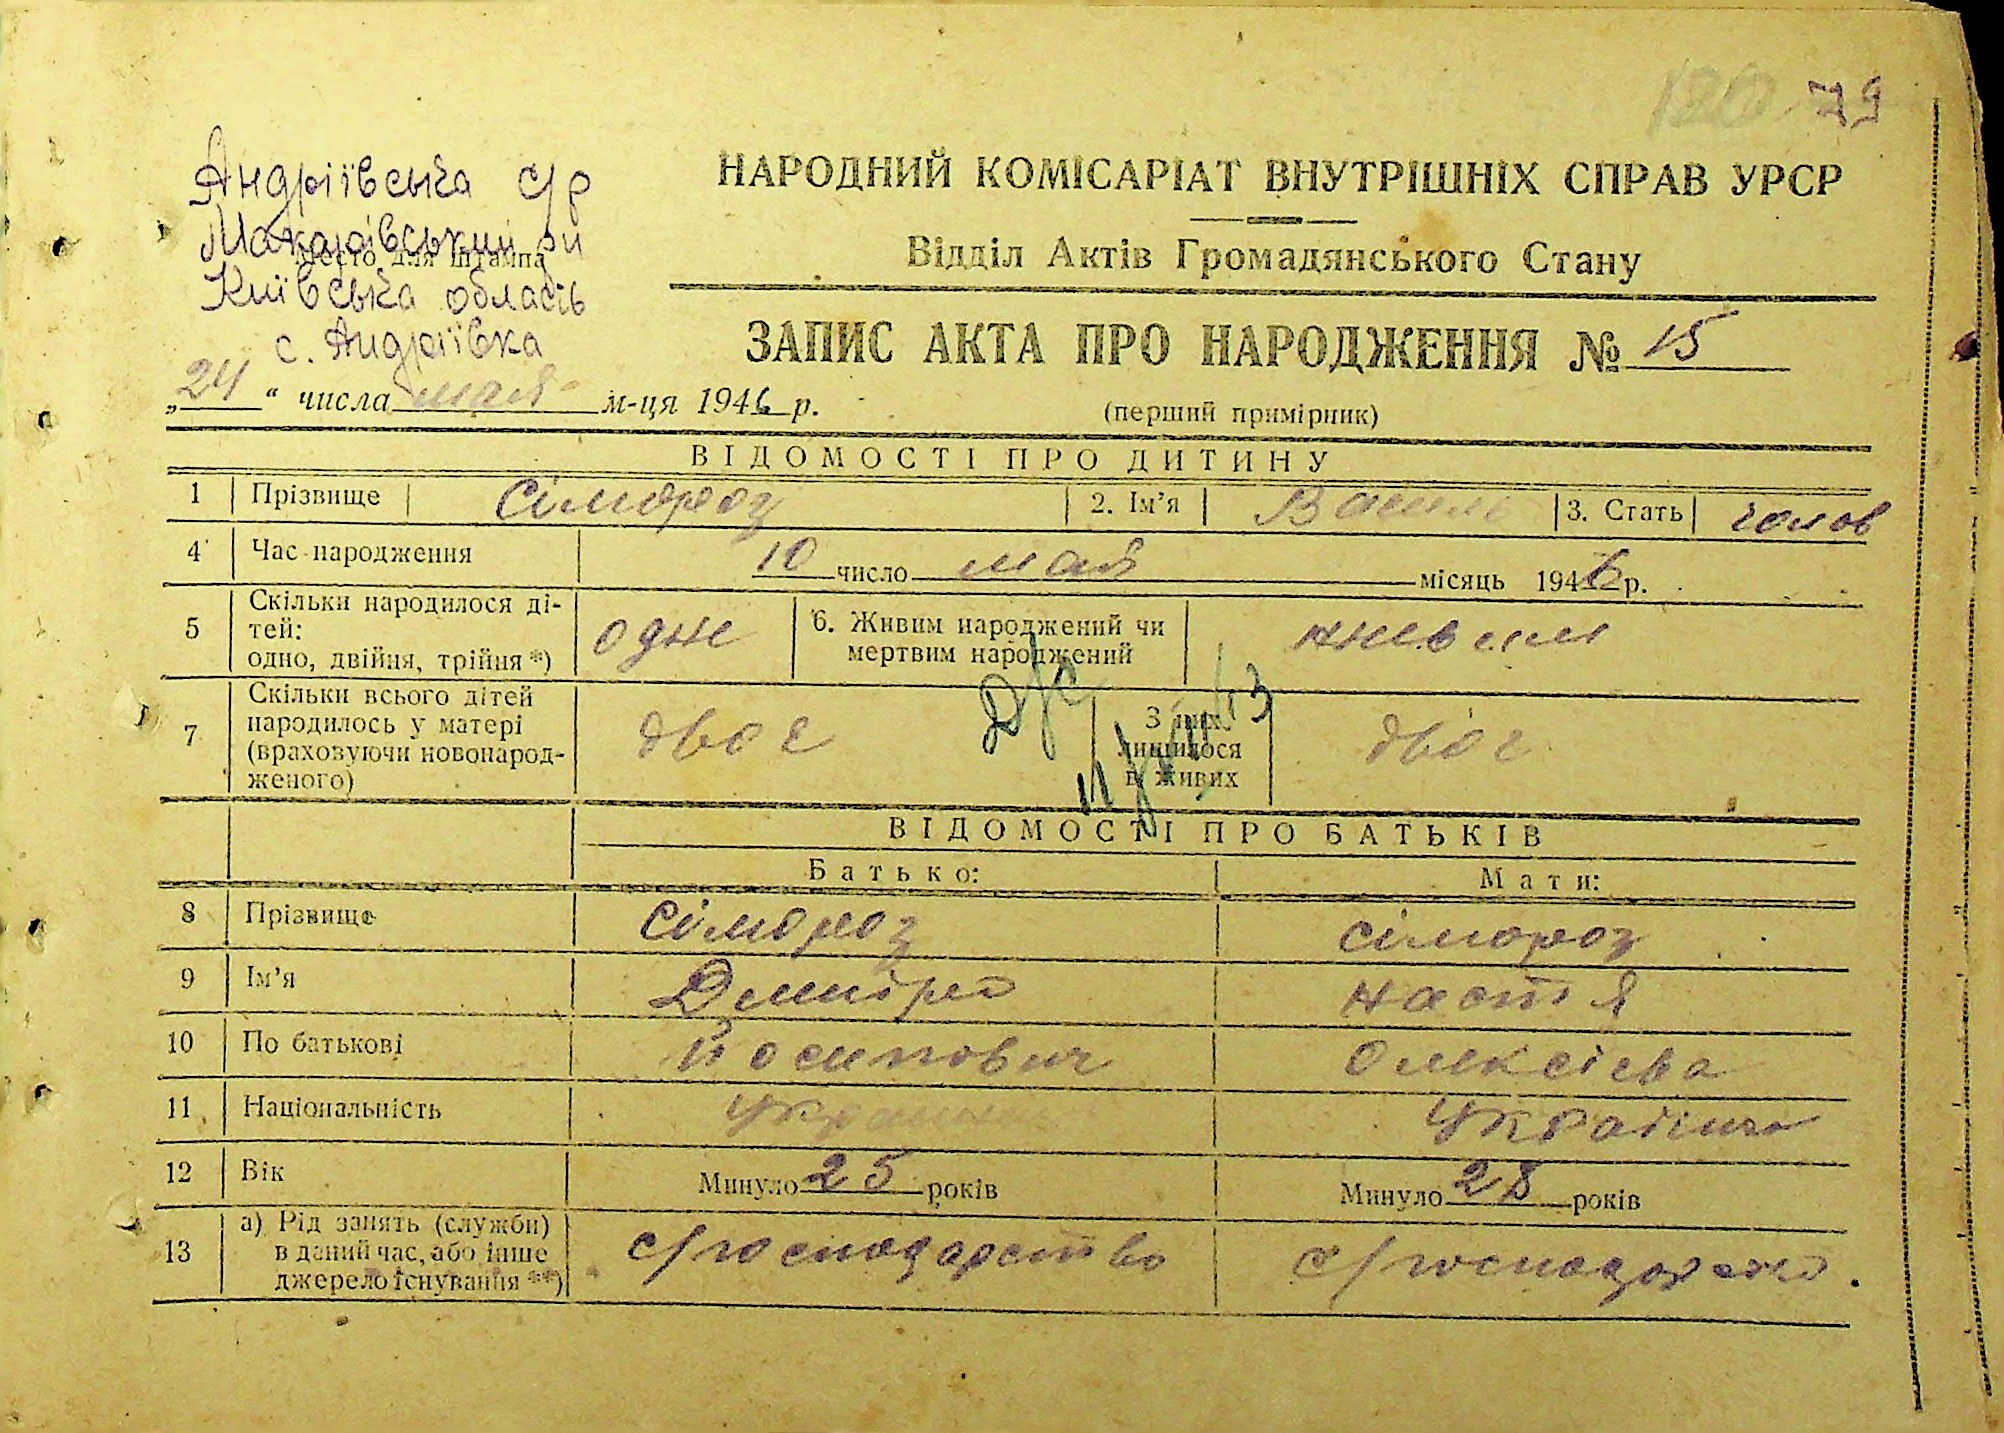 79
Андріївська с/р
Макарівський р-н
Место для штампа
Київська область
с. Андріївка
НАРОДНИЙ КОМІСАРІАТ ВНУТРІШНІХ СПРАВ УРСР
Відділ Актів Громадянського Стану
ЗАПИС АКТА ПРО НАРОДЖЕННЯ № 15
„24“ числа мая м-ця 1946 р.
(перший примірник)
ВІДОМОСТІ ПРО ДИТИНУ
1 Прізвище Сімороз 2. Ім’я Василь 3. Стать чолов
4 Час народження 10 число мая місяць 1946 р.
5 Скільки народилося ді-
тей:
одно, двійня, трійня *) одне
6. Живим народжений чи
мертвим народжений живим
7 Скільки всього дітей
народилось у матері
(враховуючи новонарод-
женого) двоє
З них
лишилося
в живих двоє
ВІДОМОСТІ ПРО БАТЬКІВ
Батько: Мати:
8 Прізвище Сімороз Сімороз
9 Ім’я Дмитро Настя
10 По батькові Йосипович Олексієва
11 Національність Україн Українка
12 Вік Минуло 25 років Минуло 28 років
13 а) Рід занять (служби)
в даний час, або інше
джерело існування **) с/господарство с/господарство